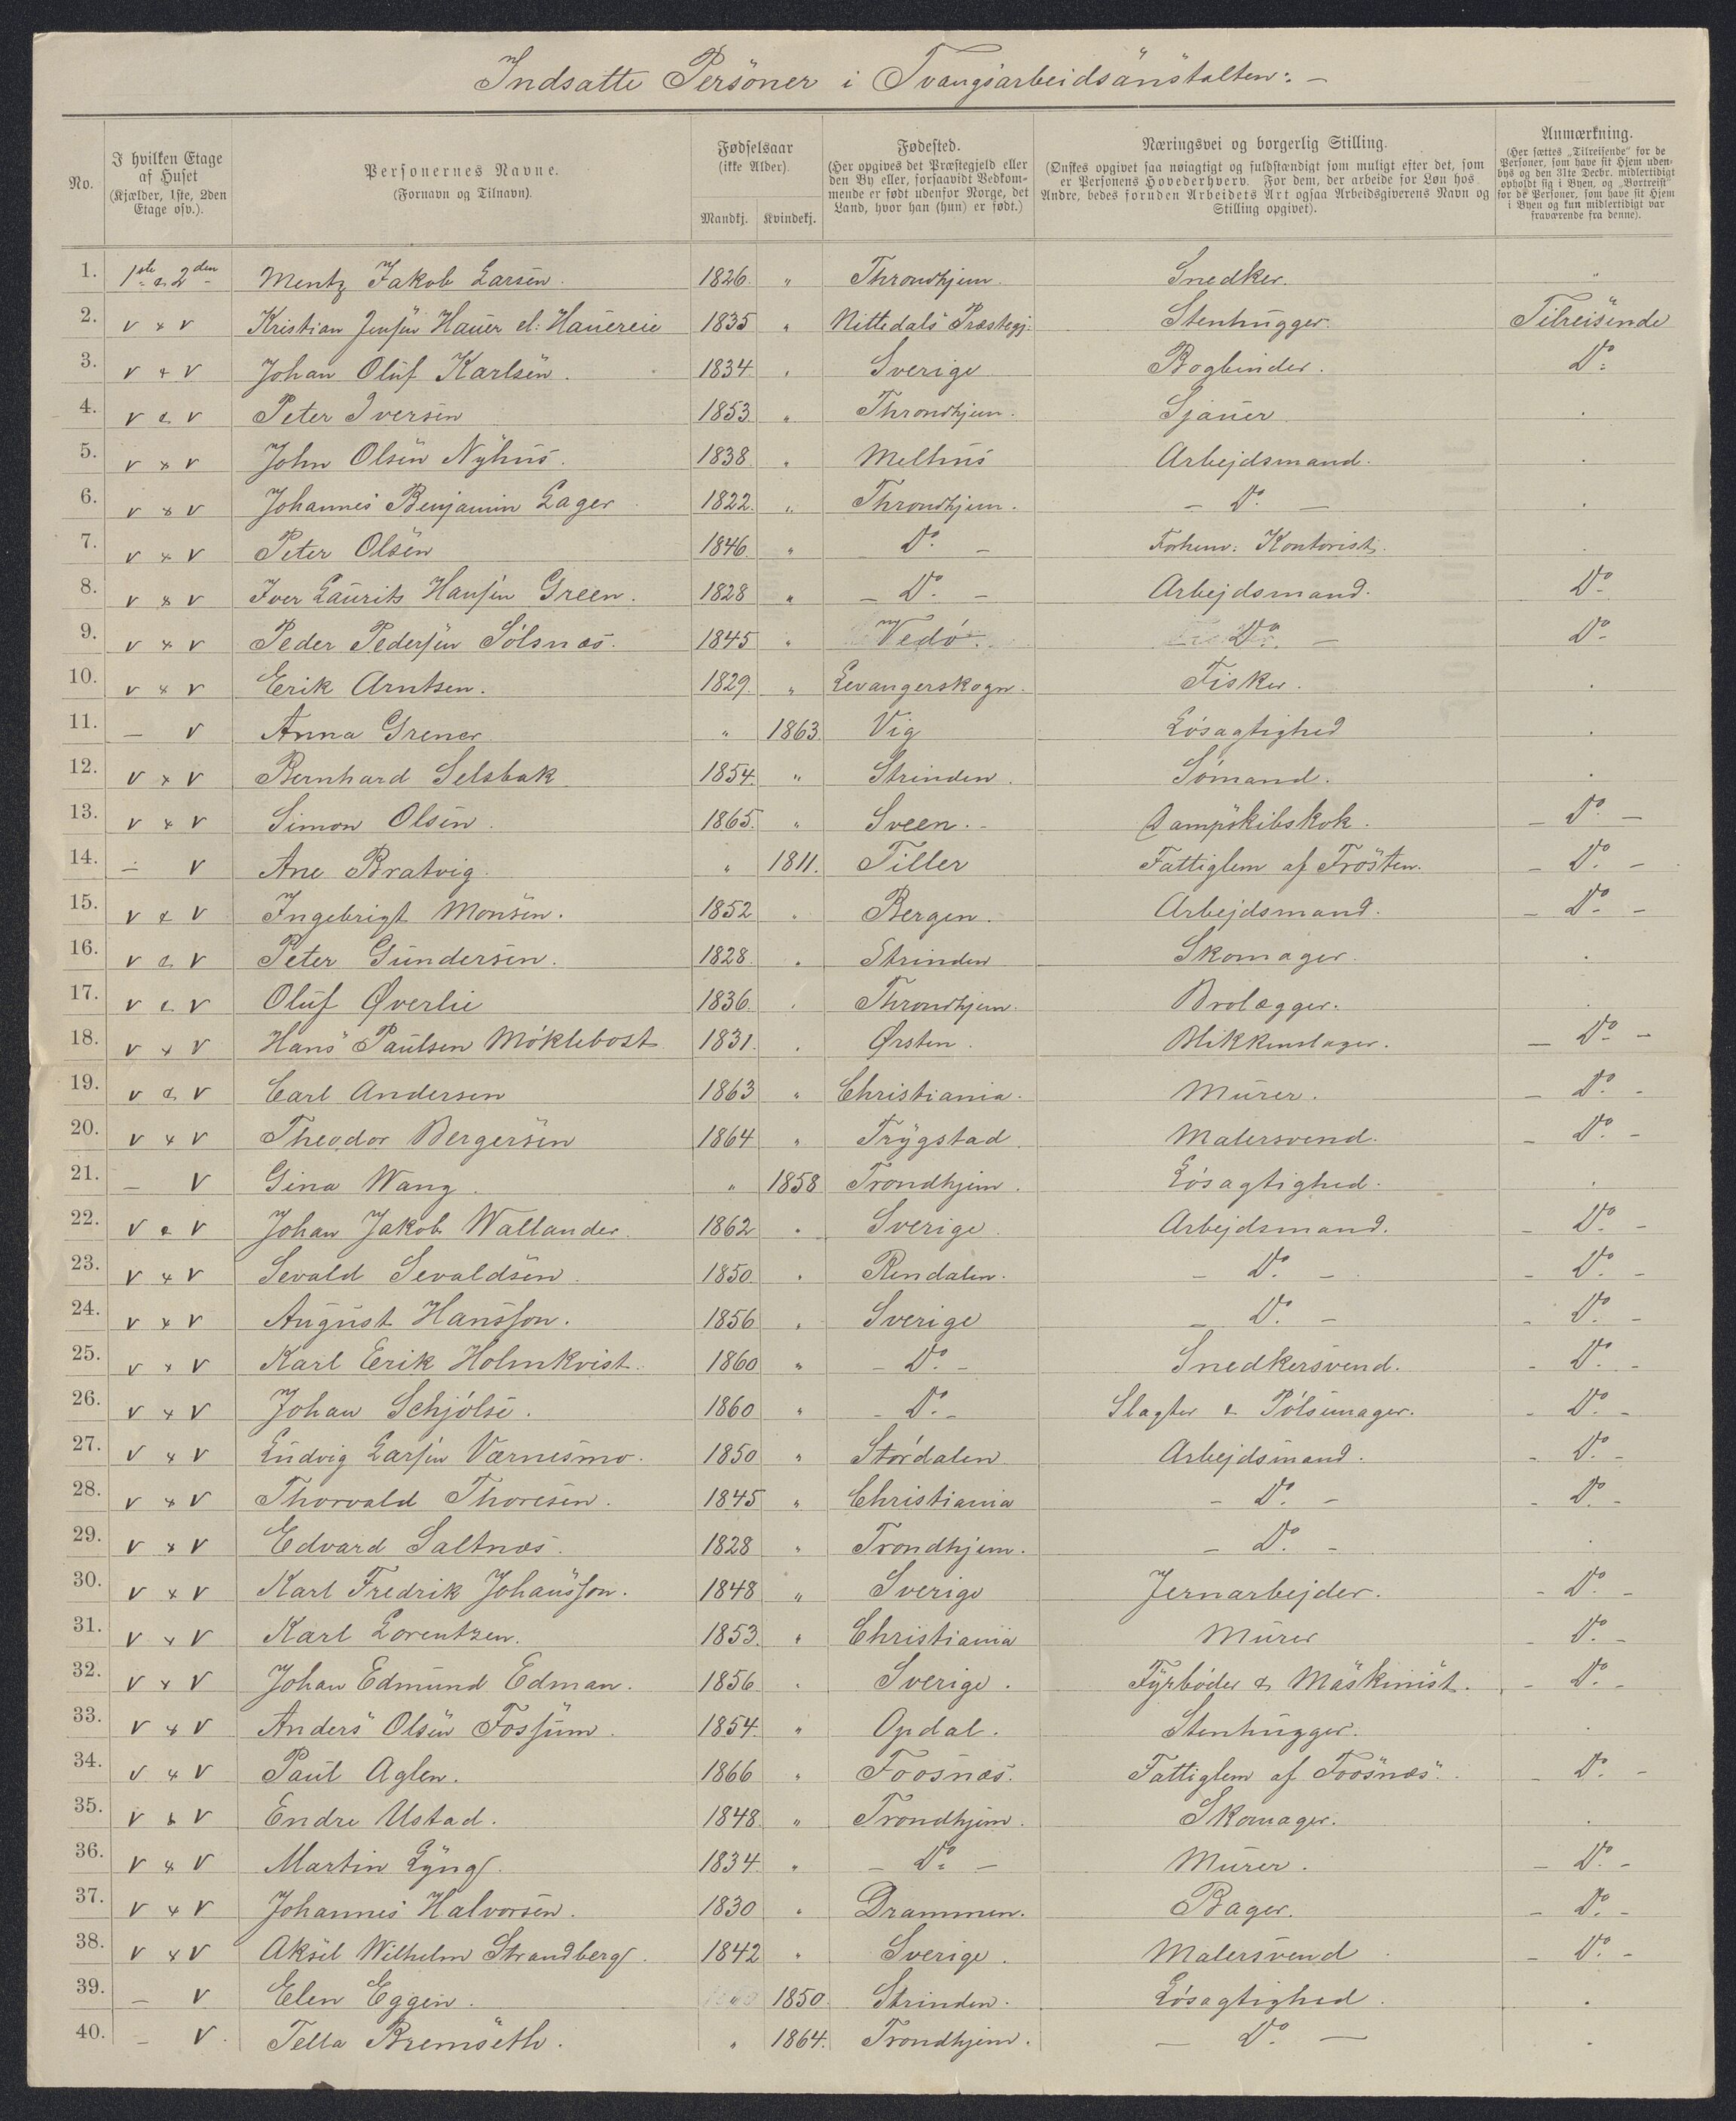 Indsatte Personer i Tvangsarbeidsanstalten. –
No. I hvilken Etage af Huset (Kjælder, 1ste, 2den Etage osv.). Personernes Navne. (Fornavn og Tilnavn). Fødselsaar (ikke Alder). Mandkj. Kvindekj. Fødested. (Her opgives det Præstegjeld eller den By eller, forsaavidt Vedkommende er født udenfor Norge, det Land, hvor han (hun) er født.) Næringsvei og borgerlig Stilling. (Ønskes opgivet saa nøiagtigt og fuldstændigt som muligt efter det, som er Personens Hovederhverv. For dem, der arbeide for Løn hos Andre, bedes foruden Arbeidets Art ogsaa Arbeidsgiverens Navn og Stilling opgivet). Anmærkning. (Her sættes „Tilreisende" for de Personer, som have sit Hjem udenbys og den 31te Decbr. midlertidigt opholdt sig i Byen, og „Bortreist" for de Personer, som have sit Hjem i Byen og kun midlertidigt var fraværende fra denne).
1. 1ste & 2den Mentz Jakob Larsen. 1826 " Throndhjem. Snedker. "
2. v & v Kristian Jensen Hauer el: Hauereie 1835 " Nittedals Præstegj: Stenhugger. Tilreisende
3. v & v Johan Oluf Karlsen. 1834 " Sverige Bogbinder. Do
4. v & v Peter Iversen 1853 " Throndhjem. Sjauer
5. v & v John Olsen Nyhus. 1838 " Melhus Arbejdsmand.
6. v & v Johannes Benjamin Lager 1822. " Throndhjem. – Do –
7. v & v Peter Olsen 1846 " Do – Forhenv: Kontorist.
8. v & v Iver Laurits Hansen Green. 1828 " – Do – Arbejdsmand. Do
9. v & v Peder Pedersen Sølsnæs. 1845 " Vedø. Do – Do
10. v & v Erik Arntsen. 1829. " Levangerskogn. Fisker.
11. – v Anna Grener " 1863 Vig Løsagtighed
12. v & v Bernhard Selsbak 1854. " Strinden. Sømand.
13. v & v Simon Olsen. 1865. " Sveen. Dampskibskok. – Do –
14. – v Ane Bratvig. " 1811. Tiller Fattiglem af Frosten. – Do –
15. v & v Ingebrigt Monsen. 1852 " Bergen. Arbejdsmand. – Do –
16. v & v Peter Gundersen. 1828 " Strinden Skomager.
17. v & v Oluf Øverlie 1836 " Throndhjem. Brolægger.
18. v & v Hans Paulsen Møklebost 1831. " Ørsten. Blikkenslager. – Do –
19. v & v Carl Andersen 1863 " Christiania. Murer. – Do –
20. v & v Theodor Bergersen 1864 " Trygstad. Malersvend. – Do –
21. – v Gina Wang. " 1858 Trondhjem. Løsagtighed.
22. v & v Johan Jakob Wallander. 1862 " Sverige. Arbejdsmand. – Do –
23. v & v Sevald Sevaldsen. 1850 " Rendalen. – Do – – Do –
24. v & v August Hansson. 1856 " Sverige – Do – – Do –
25. v & v Karl Erik Holmkvist. 1860 " – Do – Snedkersvend. – Do –
26. v & v Johan Schjølse. 1860 " – Do – Slagter & Pølsemager. – Do –
27. v & v Ludvig Larsen Værnesmo. 1850 " Størdalen Arbejdsmand. – Do –
28. v & v Thorvald Thoresen. 1845 " Christiania – Do – – Do –
29. v & v Edvard Saltnæs. 1828 " Trondhjem. – Do –
30. v & v Karl Fredrik Johansson. 1848 " Sverige Jernarbejder. – Do –
31. v & v Karl Lorentzen. 1853. " Christiania Murer – Do –
32. v & v Johan Edmund Edman. 1856 " Sverige. Fyrbøder & Maskinist. – Do –
33. v & v Anders Olsen Fossum. 1854. " Opdal. Stenhugger.
34. v & v Paul Aglen. 1866 " Foosnæs. Fattiglem af Foosnæs. – Do –
35. v & v Endre Ustad. 1848. " Trondhjem. Skomager.
36. v & v Martin Lyng. 1834 " – Do – Murer. – Do –
37. v & v Johannes Halvorsen. 1830 " Drammen. Bager. – Do –
38. v & v Aksel Wilhelm Strandberg. 1842 " Sverige. Malersvend. – Do –
39. – v Elen Eggen. 1850. Strinden. Løsagtighed.
40. – v. Tella Bremseth. " 1864. Trondhjem. – Do –